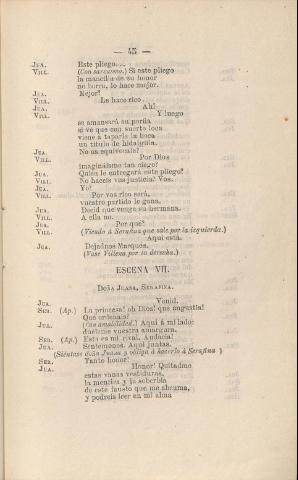 — 45 —
JUA. Este pliego...
VILL. (Con sarcasmo.) Si este pliego
la mancilla de su honor
no borra, le hace mejor.
JUA. Mejor?
VILL. Le hace rico.
JUA. Ah!
VILL. Y luego
se amansará su furia
si ve que con suerte loca
viene a taparla la boca
un título de hidalguía.
JUA. No os equivocais?
VILL. Por Dios
imagináisme tan ciego?
JUA. Quién le entregará este pliego?
VILL. No haceis vos justicia! Vos.
JUA. Yo?
VILL. Por vos rico será,
vuestro partido le gana.
JUA. Decid que venga su hermana.
VILL. A ella no.
JUA. Por qué?
VILL. (Viendo á Serafina que sale por la izquierda.)
Aquí está.
JUA. Dejadnos Marqués.
(Vase Villena por la derecha.)
ESCENA VII.
DOÑA JUANA, SERAFINA.
JUA. Venid.
SER. (Ap.) La princesa! oh Dios! que angustia!
Qué ordenais?
JUA. (Con amabilidad.) Aquí á mi lado:
duéleme vuestra amargura.
SER. (Ap.) Esta es mi rival. Audacia!
JUA. Sentémonos. Aquí juntas.
(Siéntase doña Juana y obliga á hacerlo á Serafina)
SER. Tanto honor!
JUA. Honor! Quitadme
estas vanas vestiduras,
la mentira y la soberbia
de este fausto que me abruma,
y podreis leer en mi alma